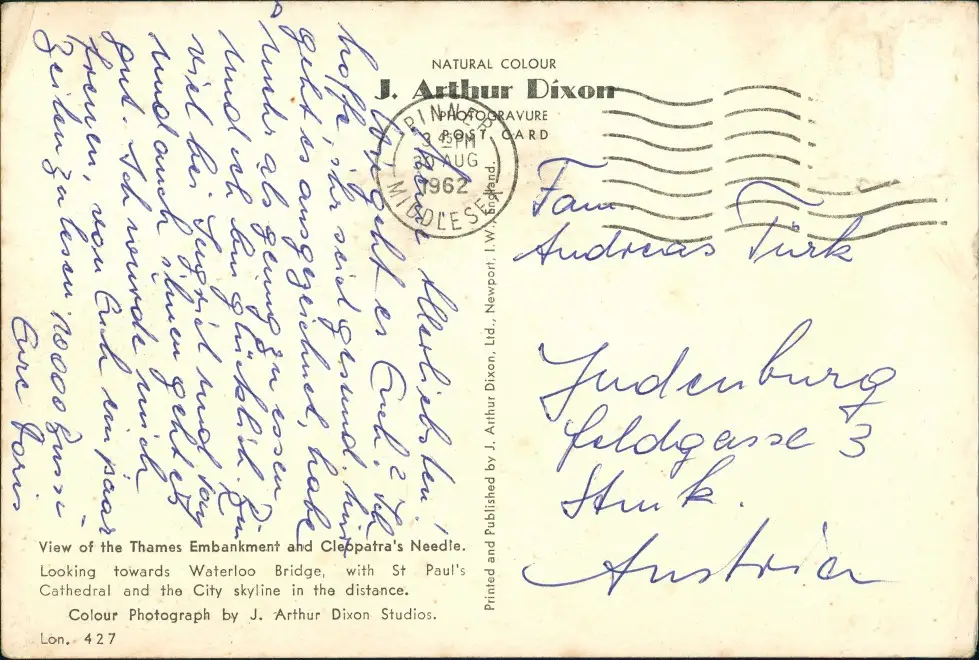 NATURAL COLOUR
J. Arthur Dixon
PHOTOGRAVURE
POST CARD
PINNER
3 45 PM
30 AUG
1962
MIDDLESEX
Meine Allerliebsten!
Wie geht es Euch? Ich
hoffe, ihr seid gesund. mir
geht es ausgezeichnet, habe
mehr als genug zu essen
und ich bin glücklich. Bin
viel bei Ingrid und Tony
und auch ihnen geht es
gut. Ich würde mich
freuen, von Euch ein paar
Zeilen zu lesen. 1000 Bussi
Eure Doris
Fam.
Andreas Türk
Judenburg
Feldgasse 3
Stmk.
Austria
Printed and Published by J. Arthur Dixon, Ltd., Newport, I.W., England.
View of the Thames Embankment and Cleopatra's Needle.
Looking towards Waterloo Bridge, with St Paul's
Cathedral and the City skyline in the distance.
Colour Photograph by J. Arthur Dixon Studios.
Lon. 427